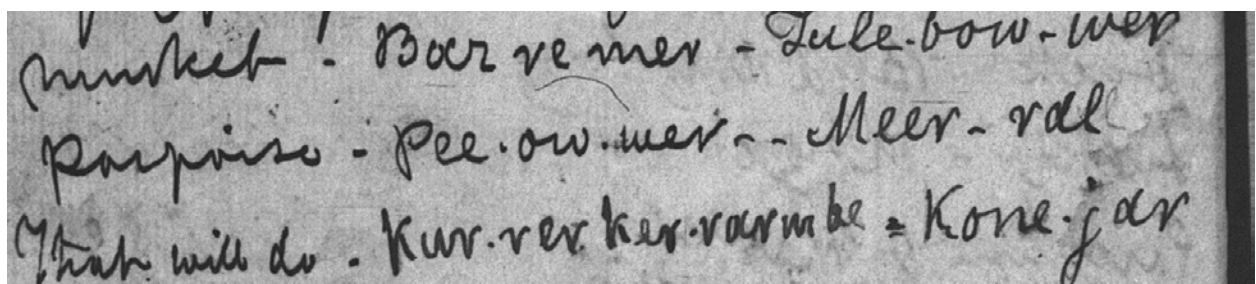 musket - Bar re mer - Lule-bow-wer
Porpoise - Pee-ow-wer -- Meer-rall
That will do - Kur.rer.ker.rarmbe = Kone-jar